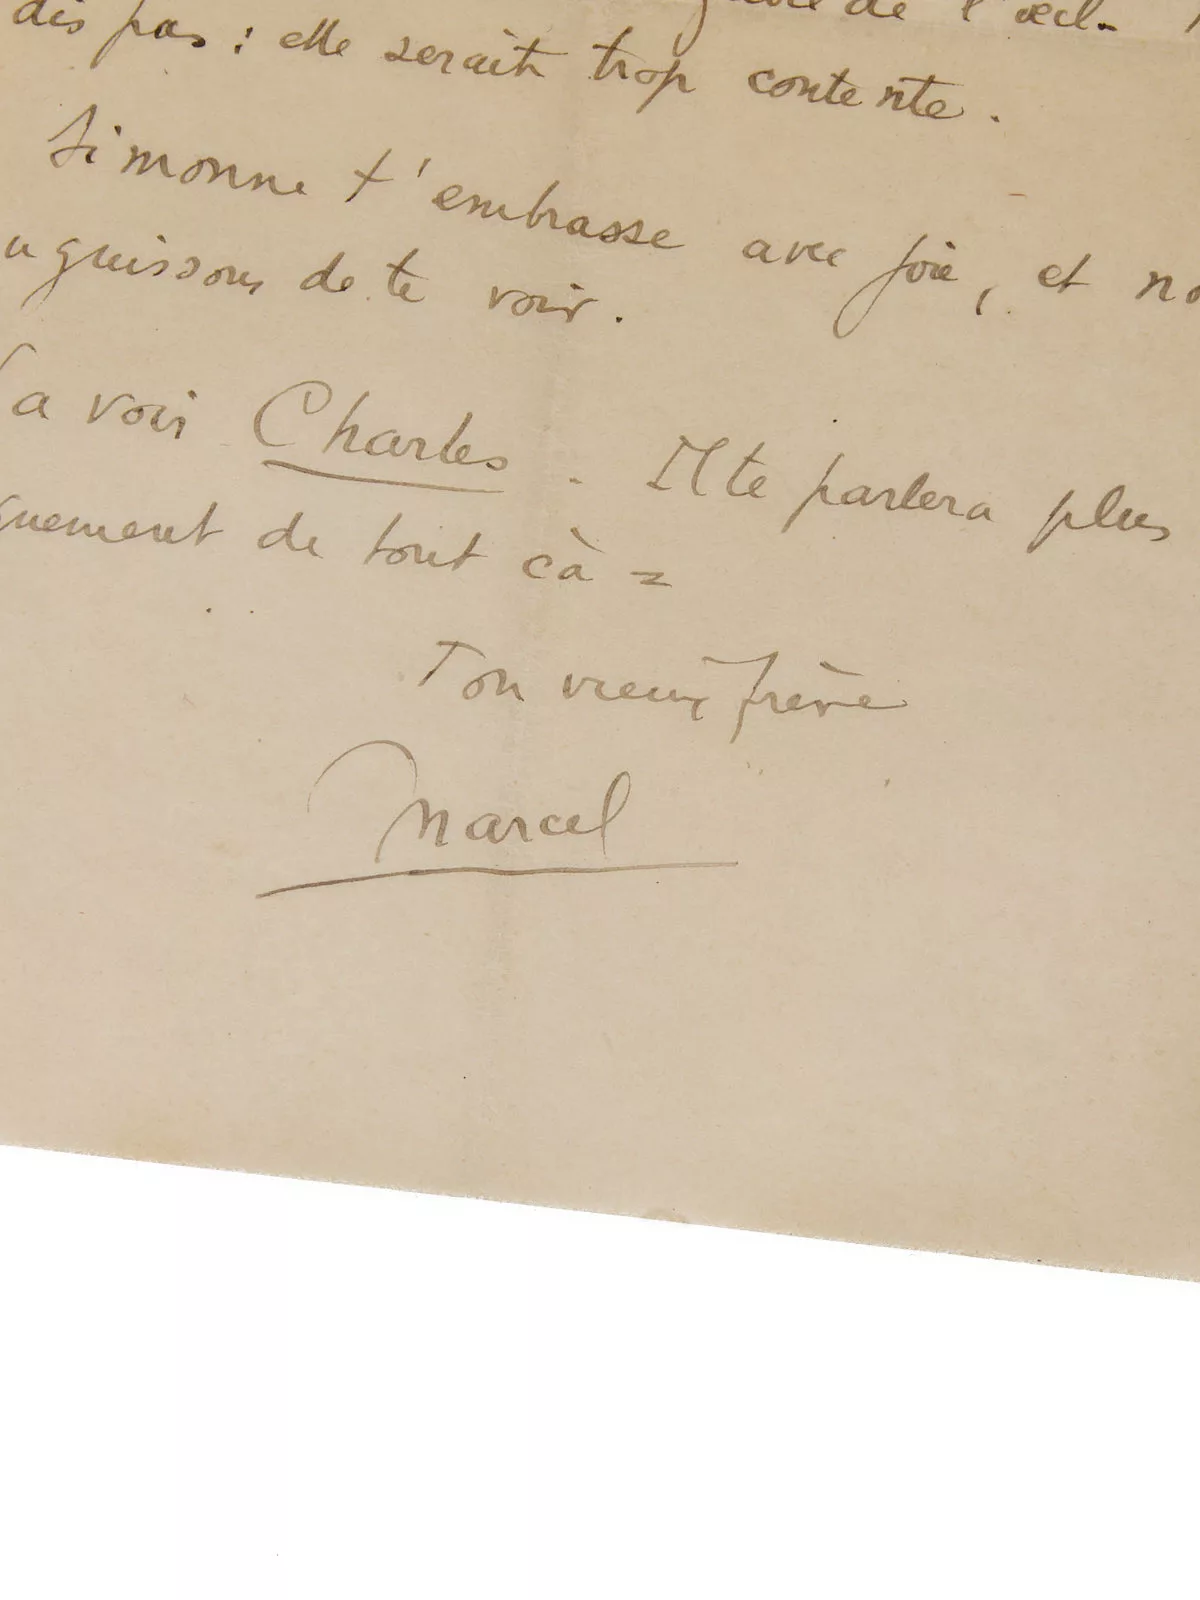 de l'œil.
dis pas : elle serait trop contente.
Simonne t'embrasse avec joie, et no
nguissons de te voir.
Va voir Charles. Il te parlera plus
guement de tout cà =
Ton vieux frère
Marcel